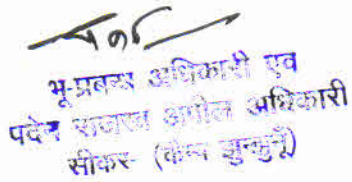 भू-प्रबन्ध अधिकारी एव
पदेन राजस्व अपील अधिकारी
सीकर (कैम्प झुन्झुनूँ)